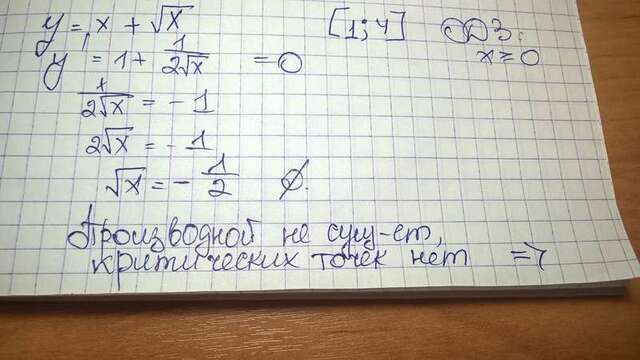 y = x + √x [1; 4] ОДЗ:
x ≥ 0
y' = 1 + 1/(2√x) = 0
1/(2√x) = -1
2√x = -1
√x = -1/2 ∅.
Производной не сущ-ет,
критических точек нет =>